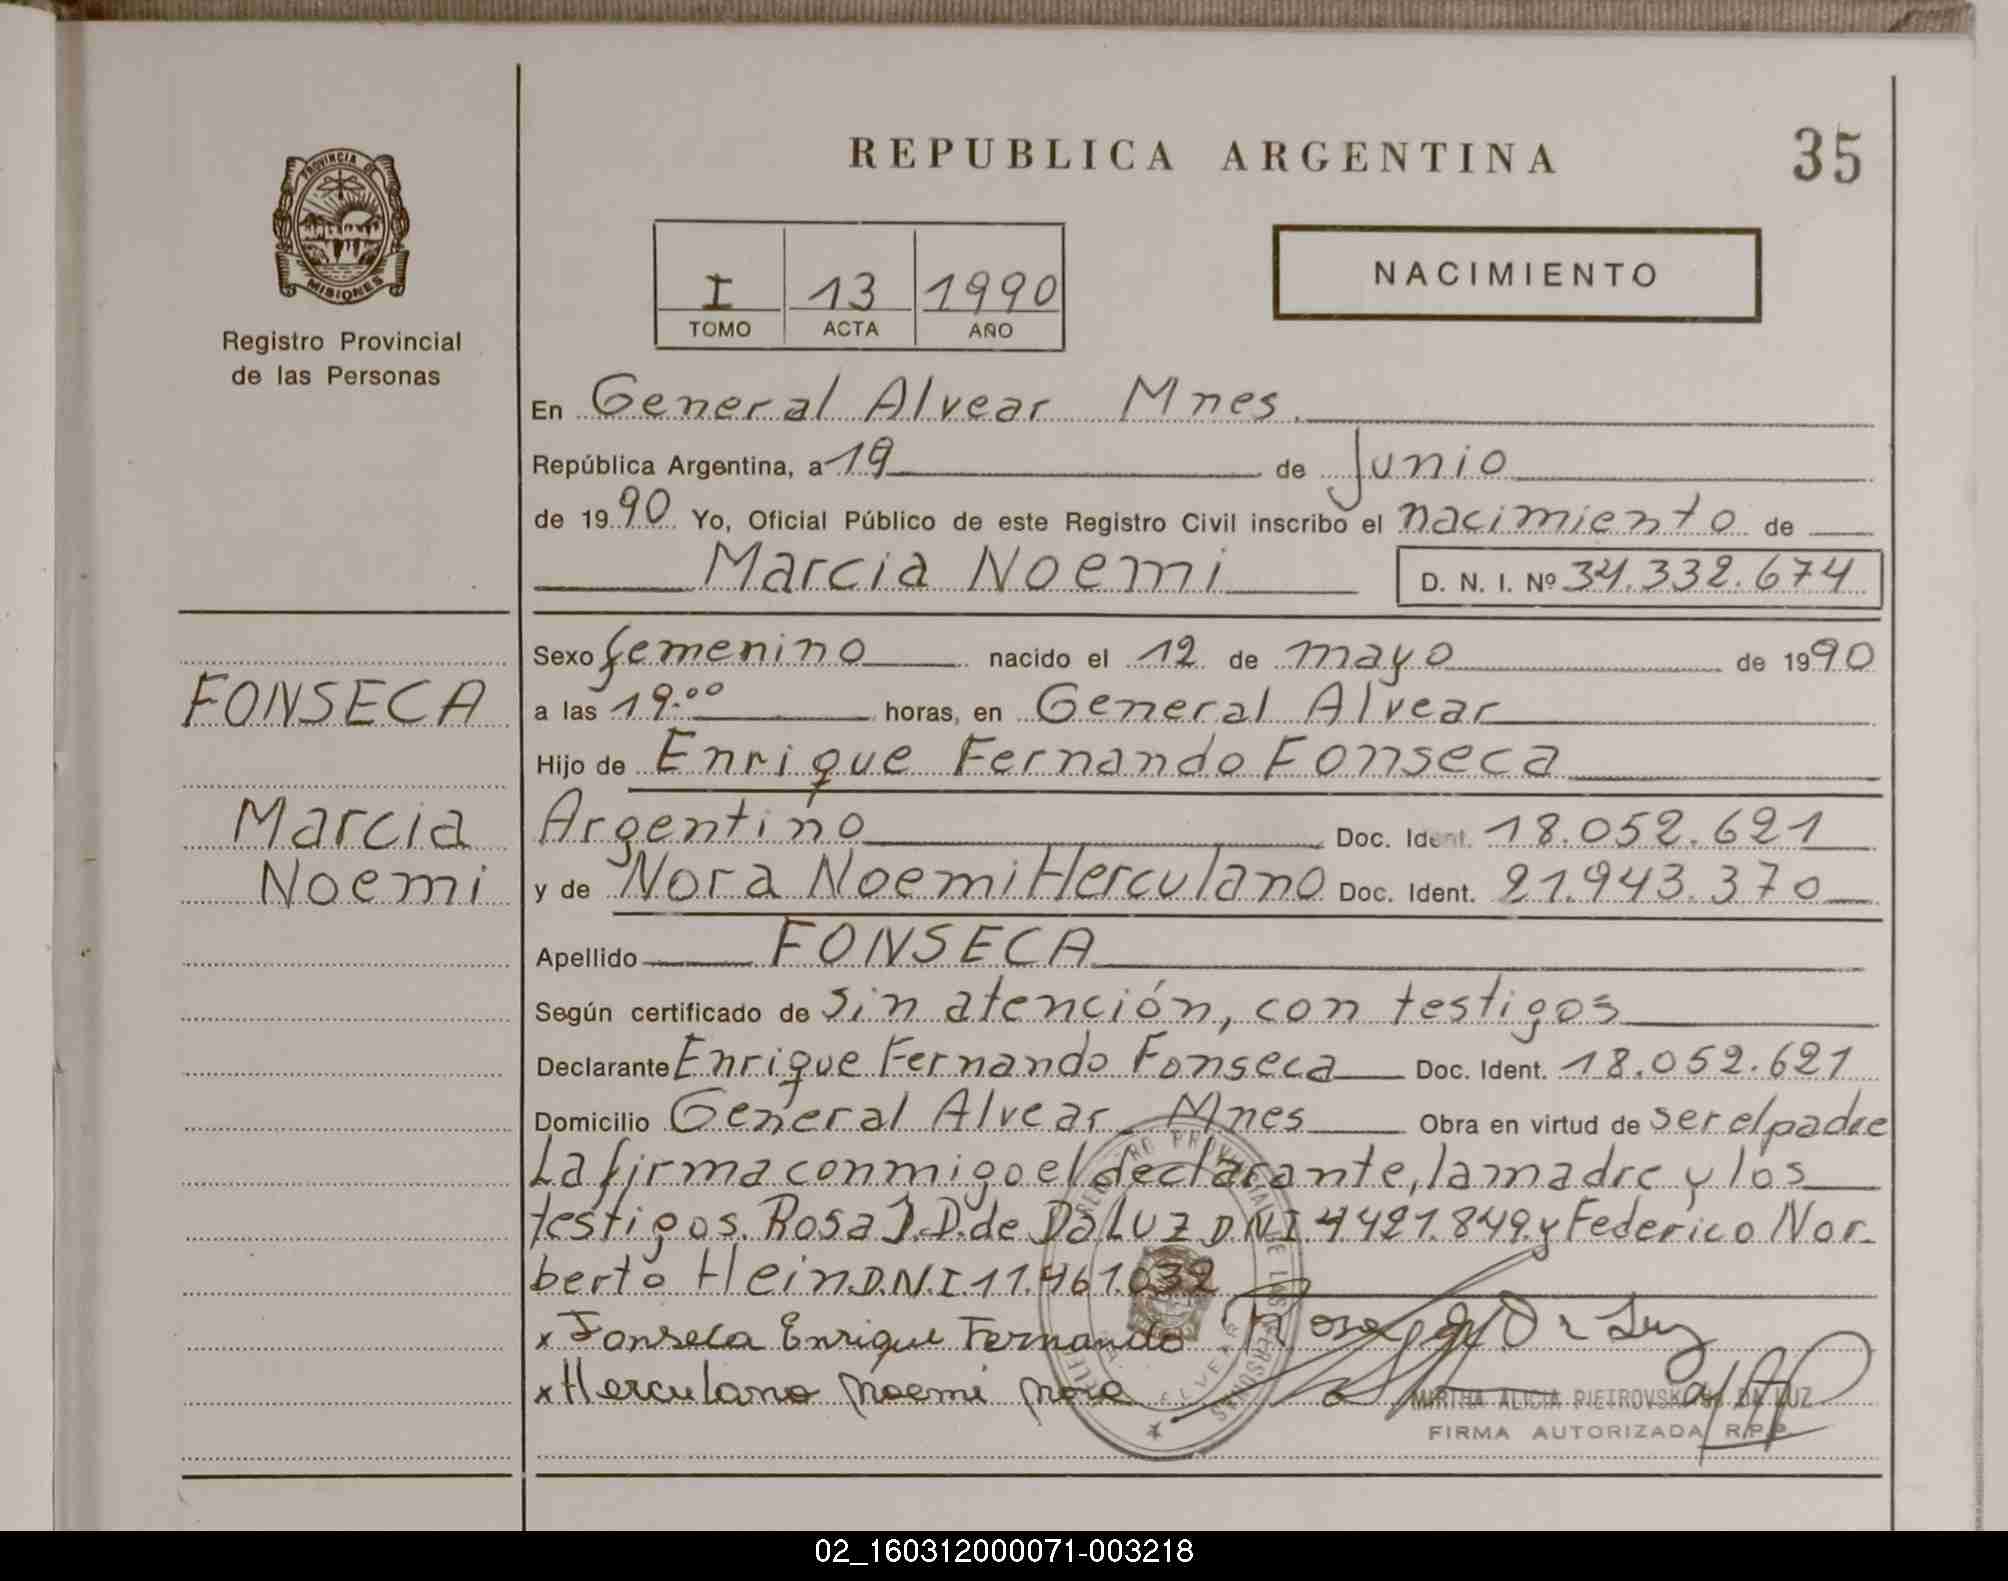 REPUBLICA ARGENTINA
35
PROVINCIA DE
MISIONES
Registro Provincial
de las Personas
I 13 1990
TOMO ACTA AÑO
NACIMIENTO
En General Alvear Mnes.
República Argentina, a 19 de Junio
de 1990 Yo, Oficial Público de este Registro Civil inscribo el nacimiento de
Marcia Noemi D. N. I. Nº 34.332.674
FONSECA
Marcia
Noemi
Sexo femenino nacido el 12 de mayo de 1990
a las 19.00 horas, en General Alvear
Hijo de Enrique Fernando Fonseca
Argentino Doc. Ident. 18.052.621
y de Nora Noemi Herculano Doc. Ident. 21.943.370
Apellido FONSECA
Según certificado de sin atención, con testigos
Declarante Enrique Fernando Fonseca Doc. Ident. 18.052.621
Domicilio General Alvear Mnes Obra en virtud de ser el padre
La firma conmigo el declarante, la madre y los
testigos. Rosa J.D. de Da Luz D.N.I. 4421.849 y Federico Nor-
berto Hein D.N.I 11.461.032
x Fonseca Enrique Fernando Rosa
x Herculano Noemi Nora
MIRTHA ALICIA PIETROVSKI DA LUZ
FIRMA AUTORIZADA R.P.P.
02_160312000071-003218